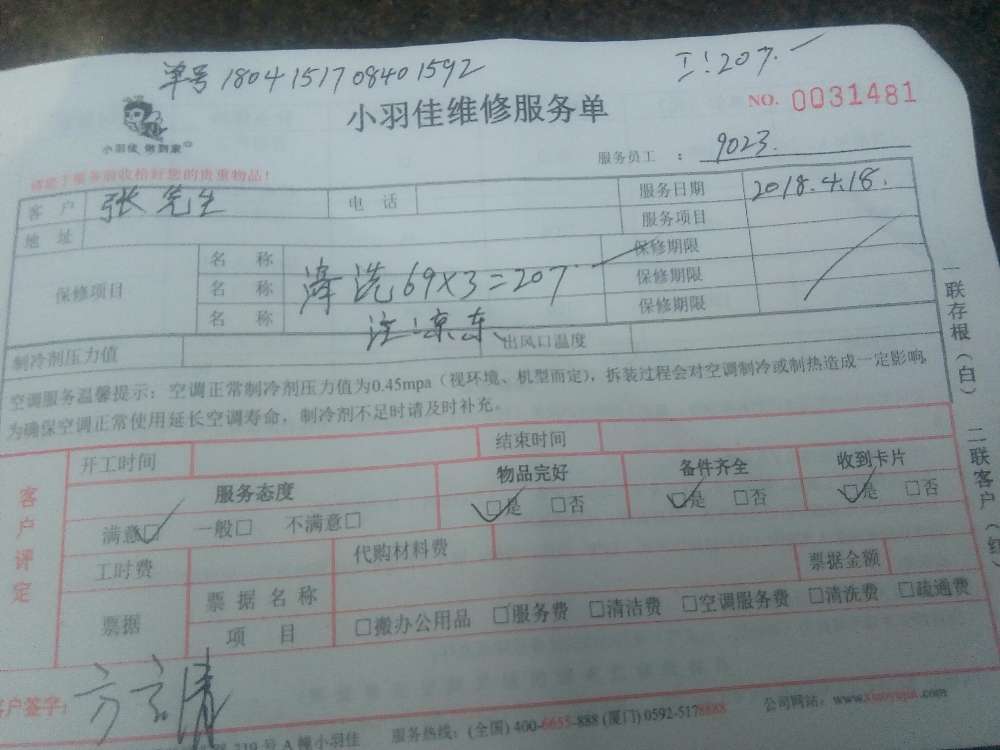 单号1804151708401592 工:207.
小羽佳 做到家
小羽佳维修服务单
NO. 0031481
服务员工 : 9023.
请您于服务前收拾好您的贵重物品!
客 户 张先生 电 话 服务日期 2018.4.18.
地 址 服务项目
保修项目 名 称 保修期限
名 称 清洗69X3=207. 保修期限
名 称 注:京东、 保修期限
制冷剂压力值 出风口温度
空调服务温馨提示：空调正常制冷剂压力值为0.45mpa（视环境、机型而定），拆装过程会对空调制冷或制热造成一定影响，
为确保空调正常使用延长空调寿命，制冷剂不足时请及时补充。
客户评定
开工时间 结束时间
服务态度 物品完好 备件齐全 收到卡片
满意☑ 一般□ 不满意□ ☑是 □否 ☑是 □否 ☑是 □否
工时费 代购材料费 票据金额
票据 票据名称
项 目 □搬办公用品 □服务费 □清洁费 □空调服务费 □清洗费 □疏通费
客户签字:
219号A幢小羽佳 服务热线：(全国) 400-6655-888 (厦门) 0592-5178888 公司网站：www.xiaoyujia.com
一联存根（白） 二联客户（红）